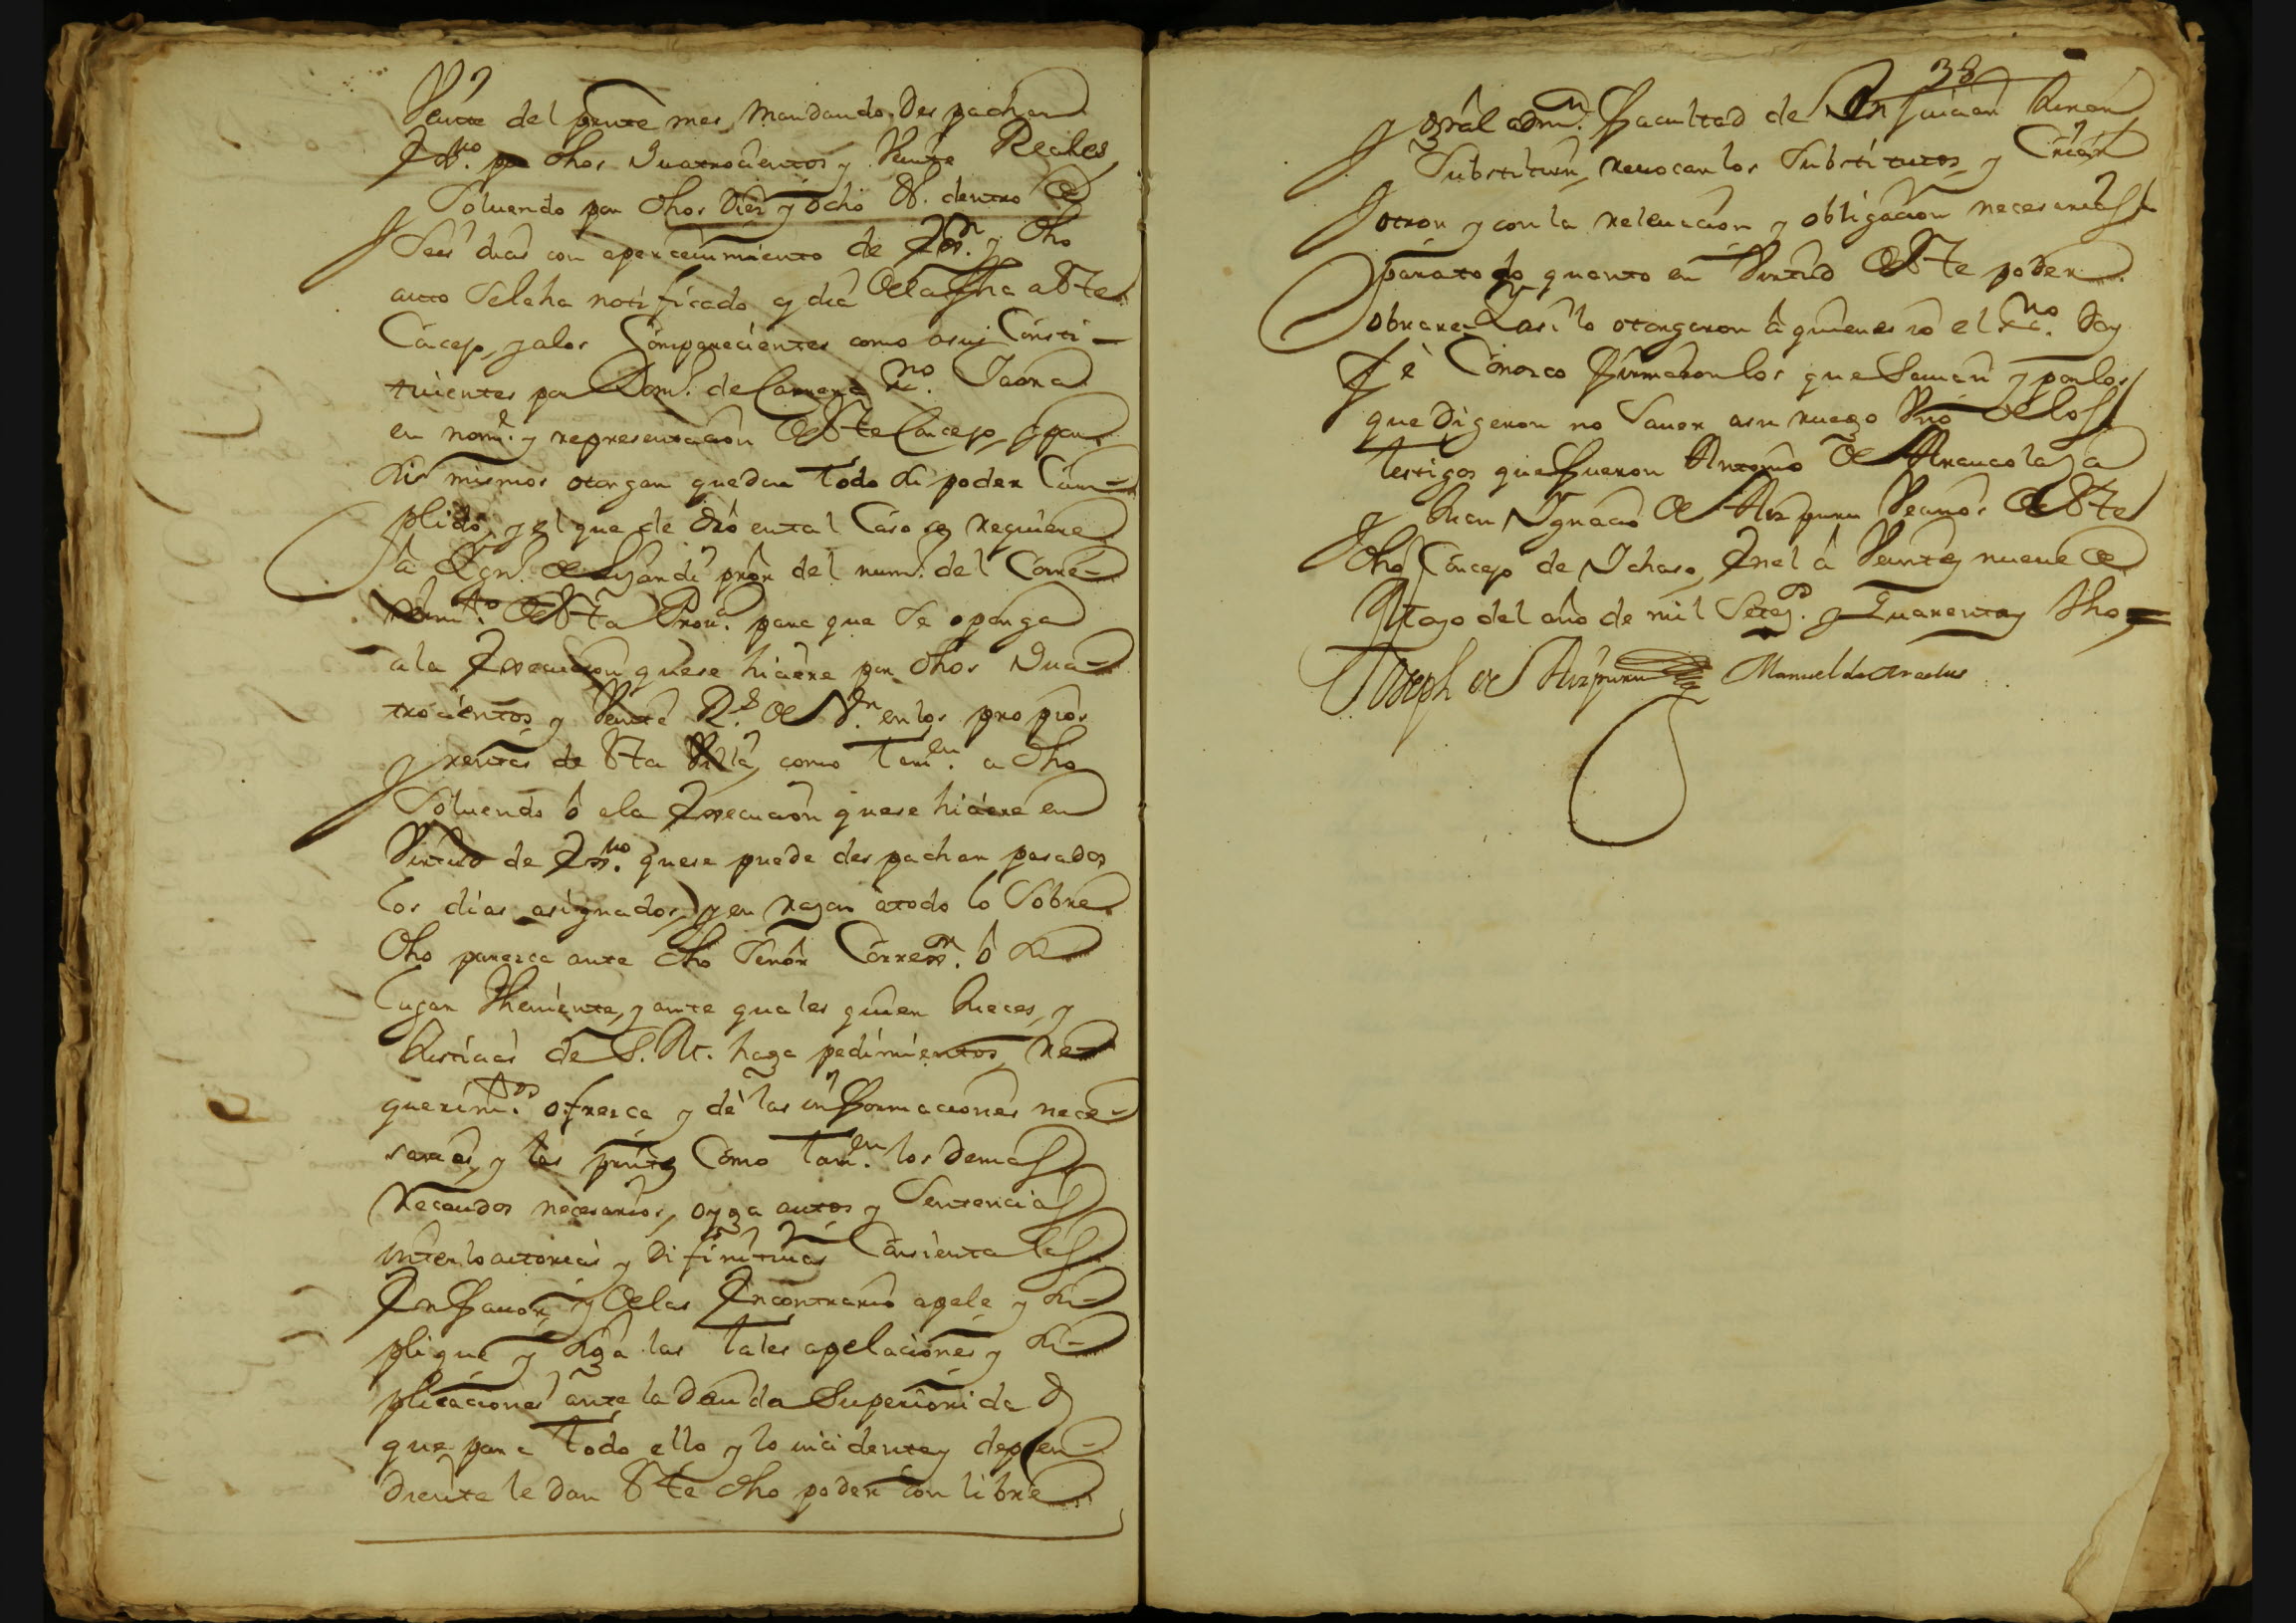 Veinte del preste mes, Mandando Despachar
Exo. por dhos Quatrocientos y Veinte Reales,
y Solvendo por dhos Diez y ocho Rs. dentro de
Seis dias con apercevimiento de Exon. y dho
auto Selaha notificado oy dia dela fha a este
Concejo, y alos Comparecientes como asus Consti-
tuientes por Domo. de Carrera essno. Y aora
en nome. y representacion de este Concejo, y por
Si mismos otorgan quedan todo Su poder Cum-
plido, y el que de dro en tal Caso se requiere
â Ygno. de Lizardi pror del numo. del Corre-
ximto. de esta Prova. para que Se oponga
ala Execucion quese hiciere por dhos Qua-
trocientos y Veinte Rs. de Vn. en los propios
y rentas de esta Villa, como tamen. a dho
Solvendo ô ala Execucion quese hiciere en
Virtud de Exo. quese puede despachar pasados
los dias asignados, y en razon atodo lo Sobre
dho parezca ante dho Señor Correor. ô Su
Lugar theniente, y ante quales quier Jueces, y
Justicias de S. M. haga pedimientos, re-
querimtos. ofrezca y dè las informaciones nece-
sarias, y las preste Como tamen. los demas
recaudos necesarios, oyga autos y Sentencias
interlocutorias y Difinitivas Consienta las
En favor, y delas En contrario apele y Su-
plique y Siga las tales apelaciones y Su-
plicaciones ante la devida Superioridad
que para todo ello y lo incidente y depen-
diente le dan este dho poder con libre
38
y gral admon. facultad de En juiciar Jurar
Substituir, revocar los Substitutos, y Criar
otros y con la relevacion y obligacion necesarias
para todo quanto en Virtud de este poder
obrare. Y asi lo otorgaron â quienes io el essno. Doy
fè Conozco firmaron los que Savian y por los
que Digeron no Saver asu ruego Vno de los
testigos que fueron Antonio de Araucolaza
y Juan Ygnacio de Aizpuru Vecinos de este
dho Concejo de Ychaso, En el â Veinte y nueve de
Mayo del año de mil Setezs. y Quarenta y Ocho =
Joseph de Aizpuru Manuel de Aracelus